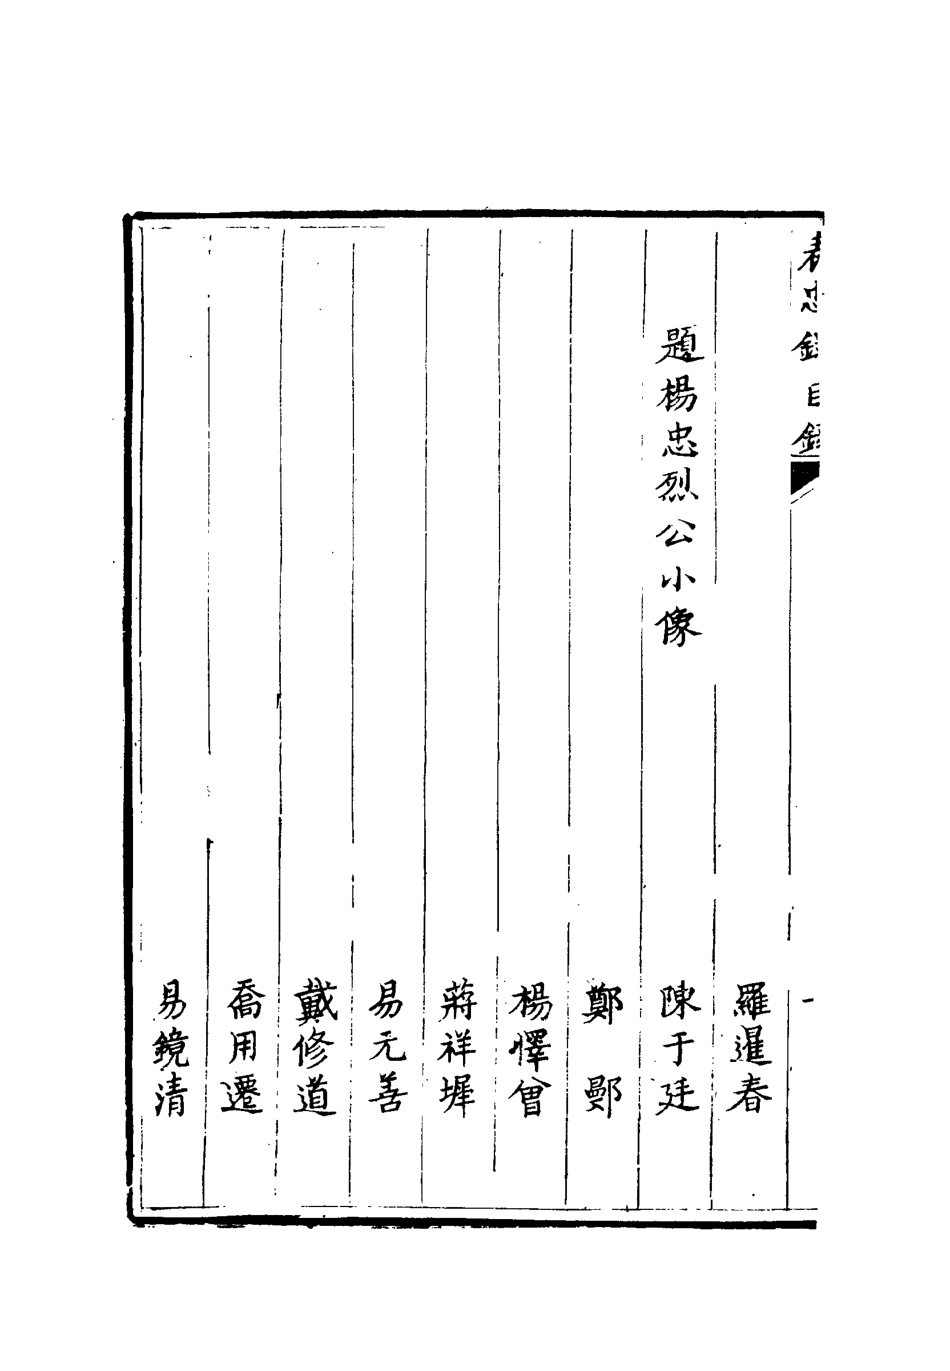 表忠錄目錄
一
羅暹春
題楊忠烈公小像
陳于廷
鄭鄤
楊懌曾
蔣祥墀
易元善
戴修道
喬用遷
易鏡清